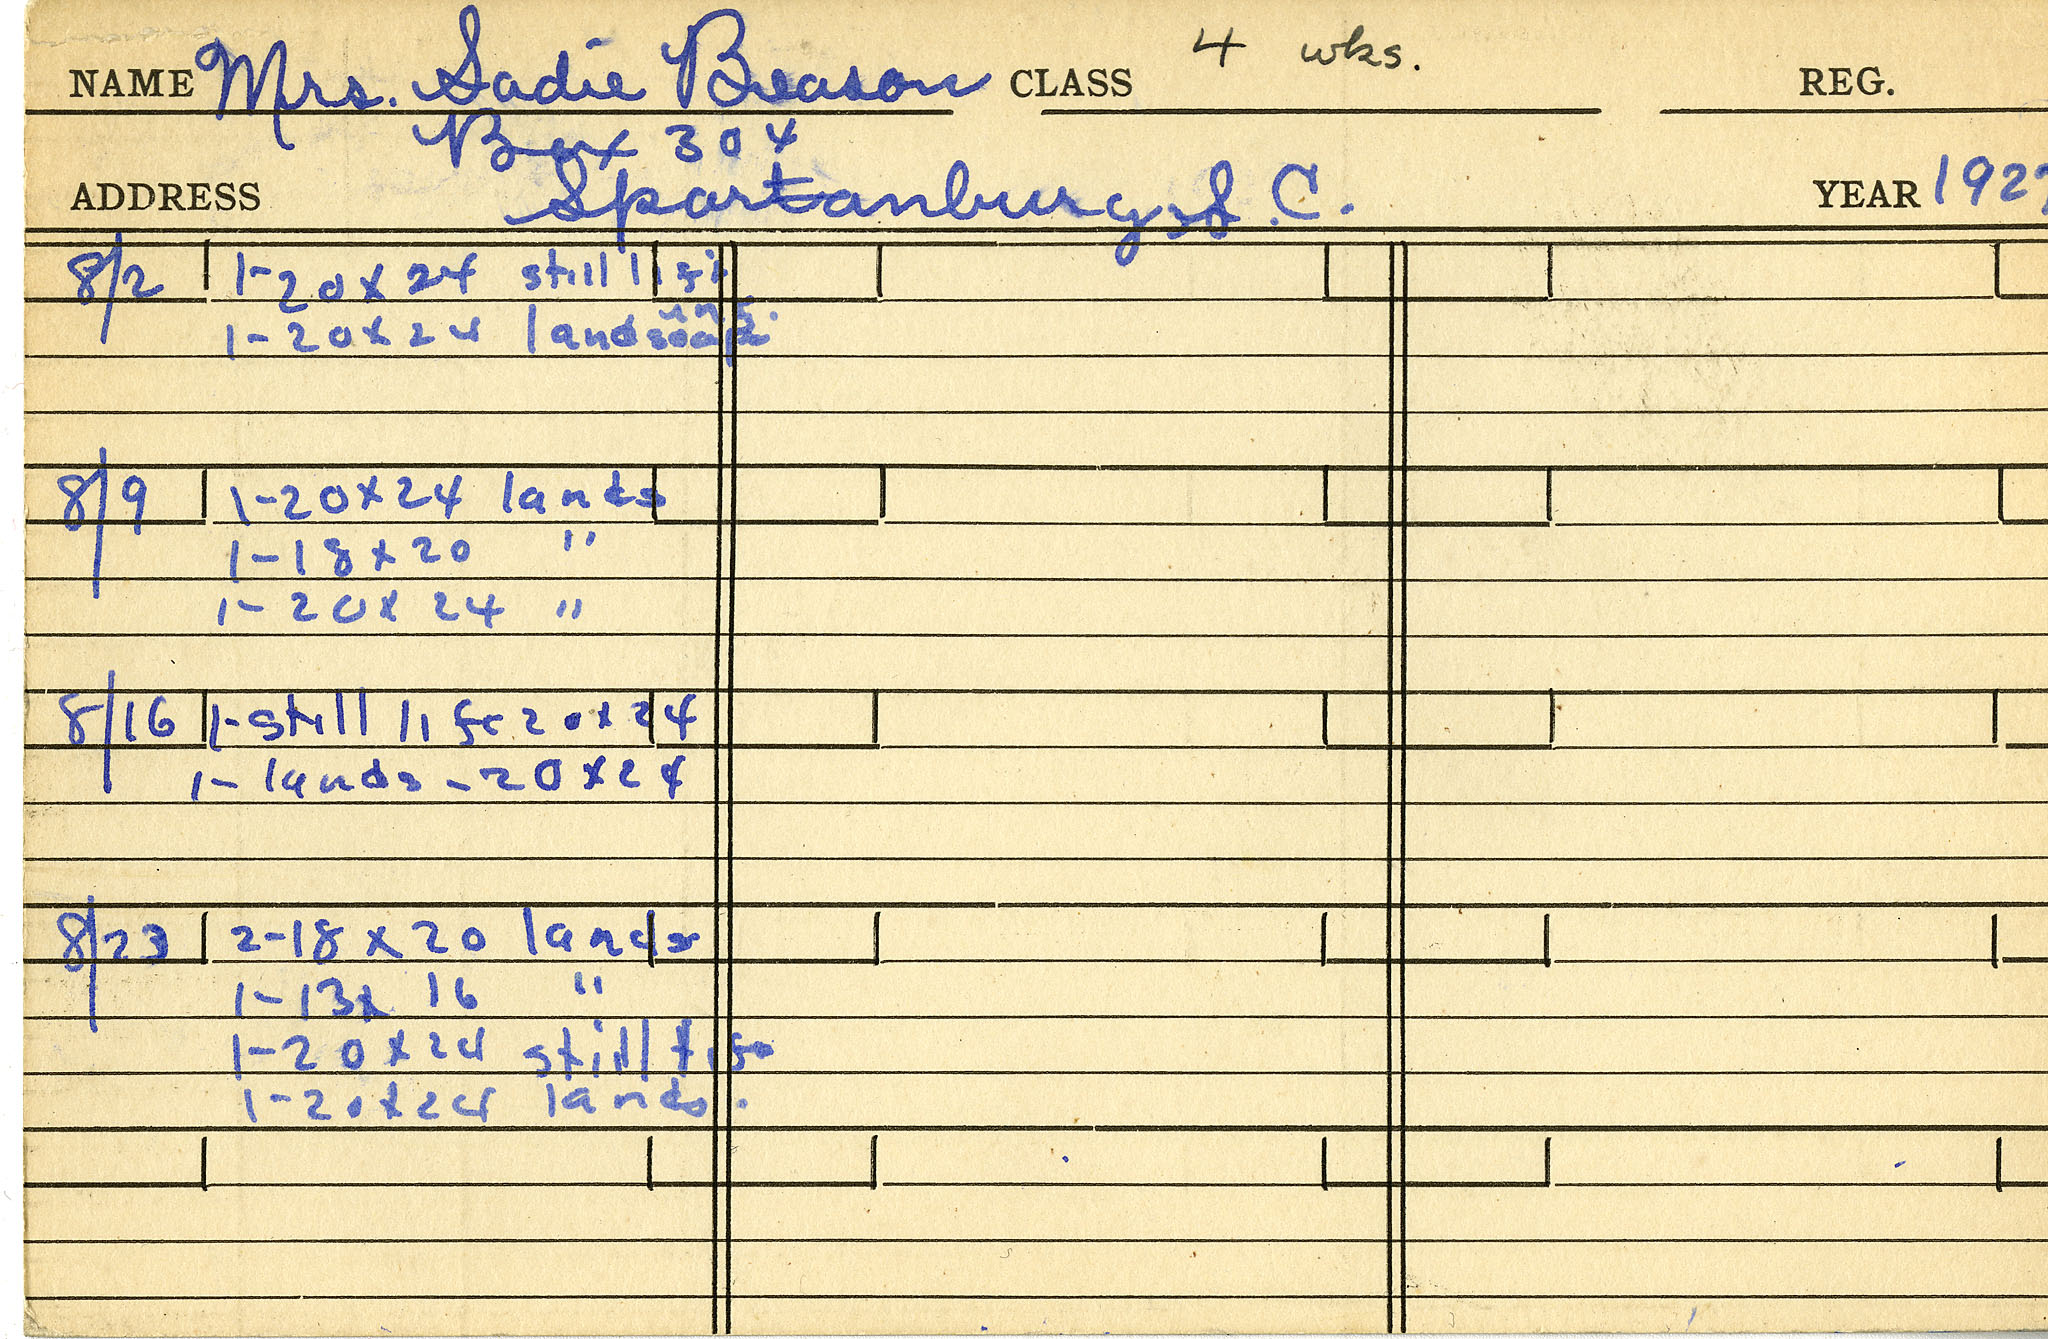 NAME Mrs. Sadie Beason CLASS 4 wks. REG.
Box 304
ADDRESS Spartanburg, S.C. YEAR
8/2 1-20x24 still life
1-20x24 landscape
8/9 1-20x24 lands
1-18x20 "
1-20x24 "
8/16 1-still life 20x24
1-lands-20x24
8/23 2-18x20 lands
1-13x16 "
1-20x24 still life
1-20x24 lands.